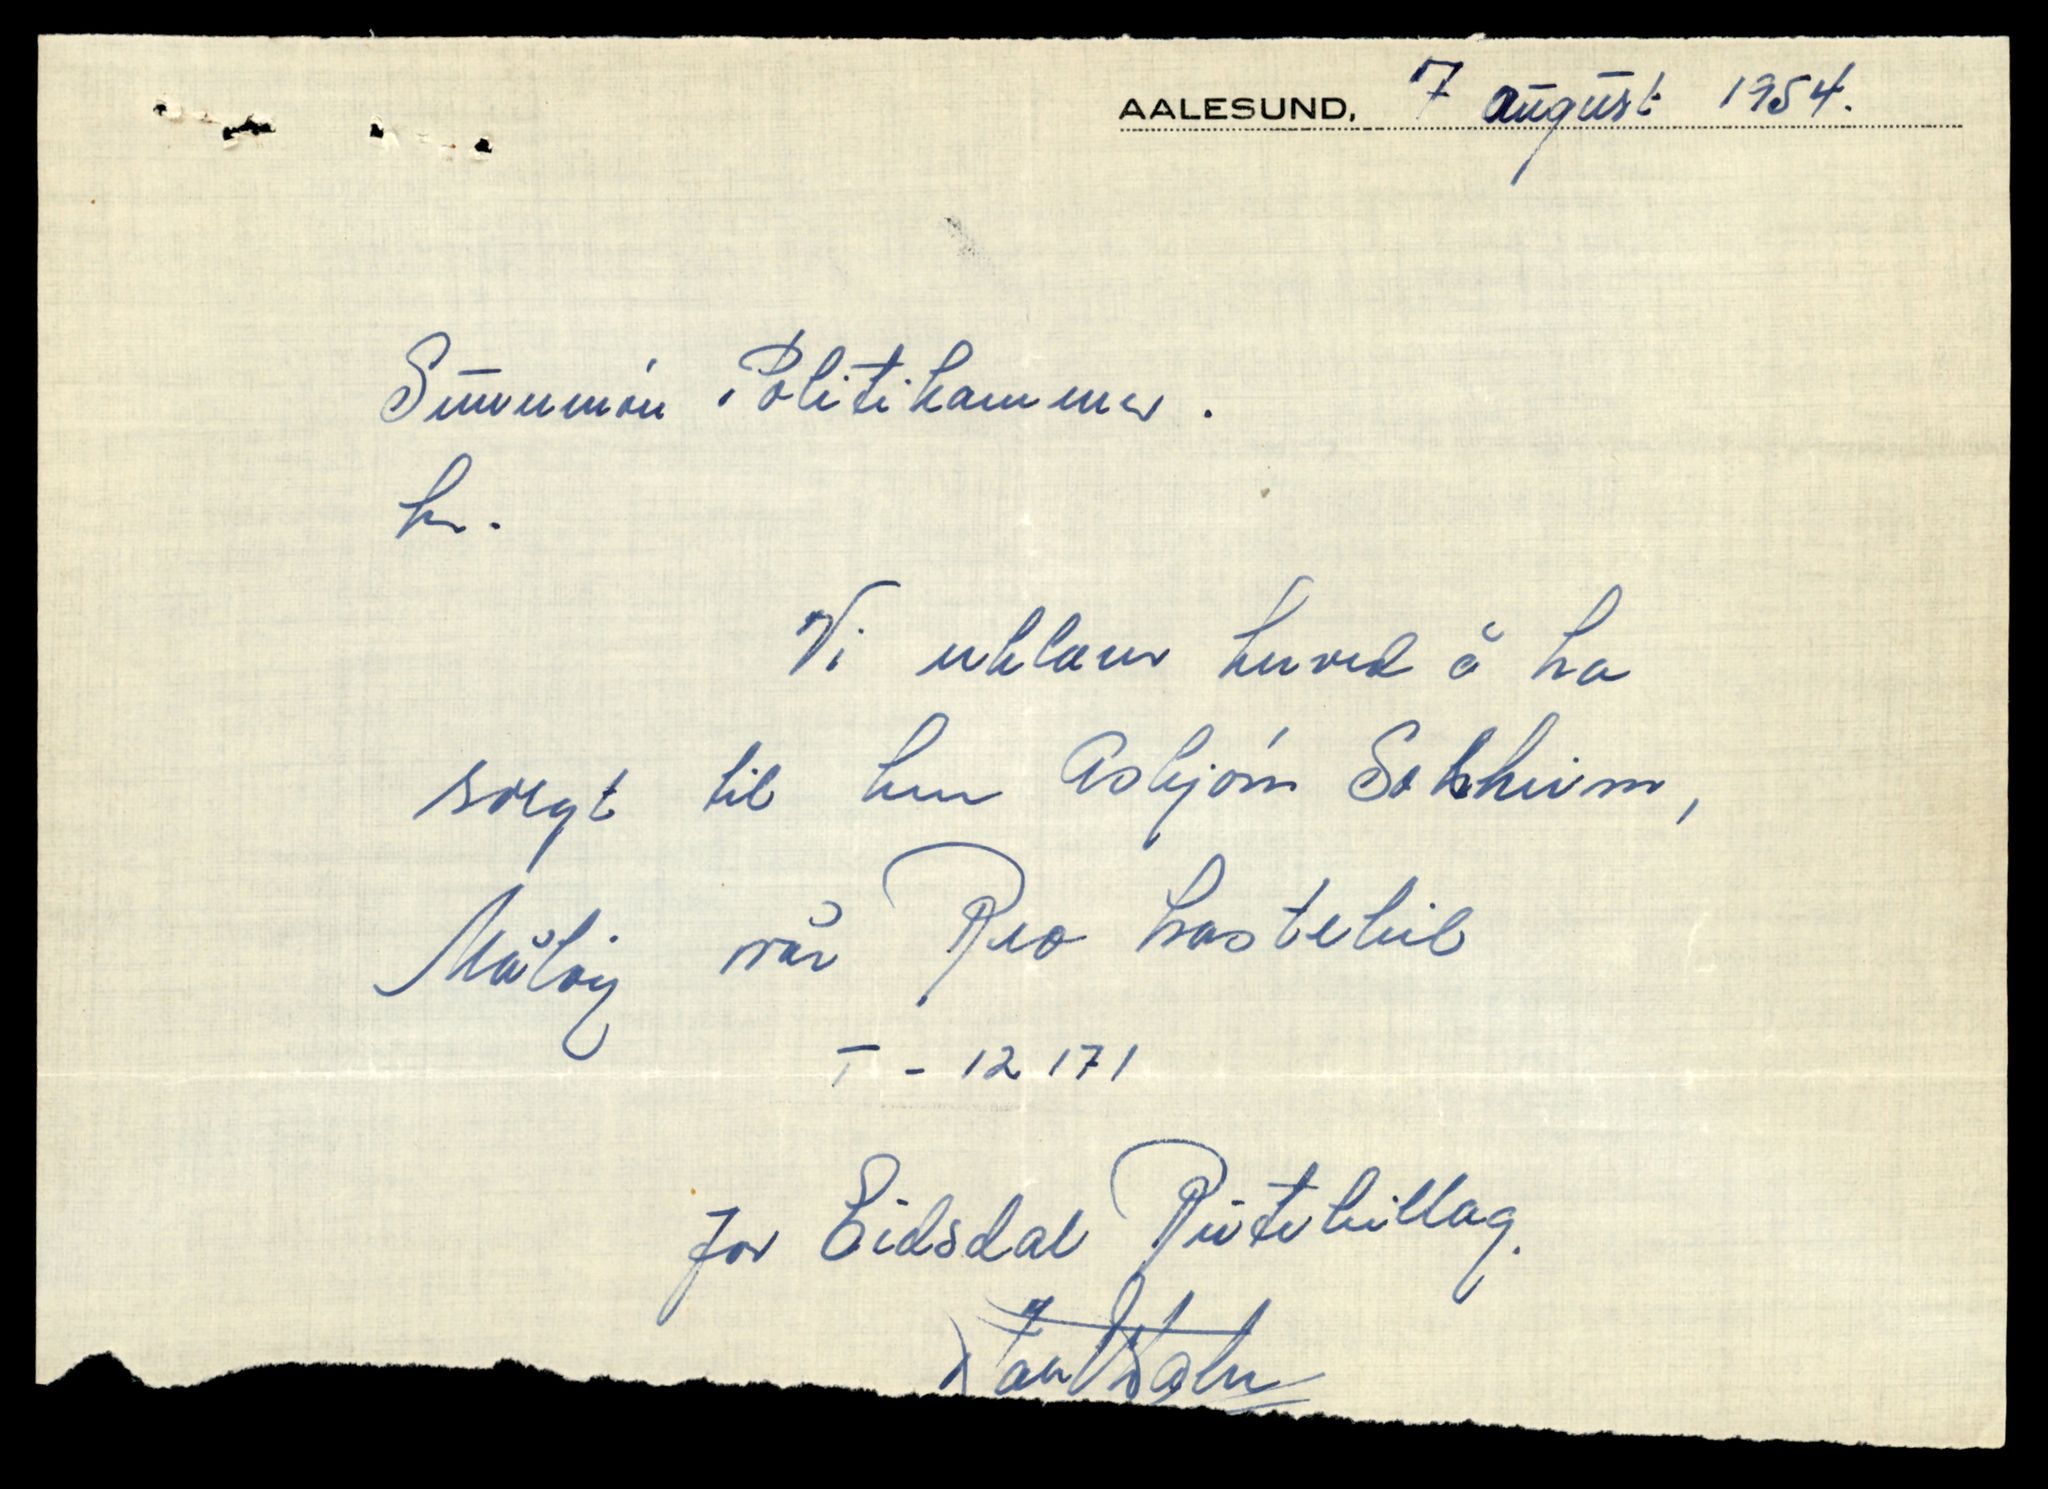 AALESUND, 7 august 1954.
Sunnmör Politikammer.
hr.
Vi erklærer herved å ha
solgt til herr Asbjörn
Målöy vår Reo lastebil
T - 12171
for Eidsdal Rutebillag.